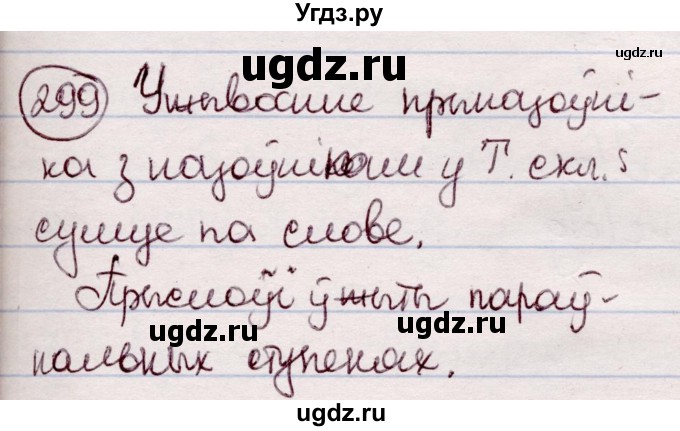 Угдз.ру
ugdz.ru
ugdz.ru
ugdz.ru
299 Ужыванне прыназоўні-
ка з назоўнікам у Т. скл.:
сумуе па слове.
Прыслоўі ўжыты параў-
нальных ступенях.
ugdz.ru
ugdz.ru
ugdz.ru